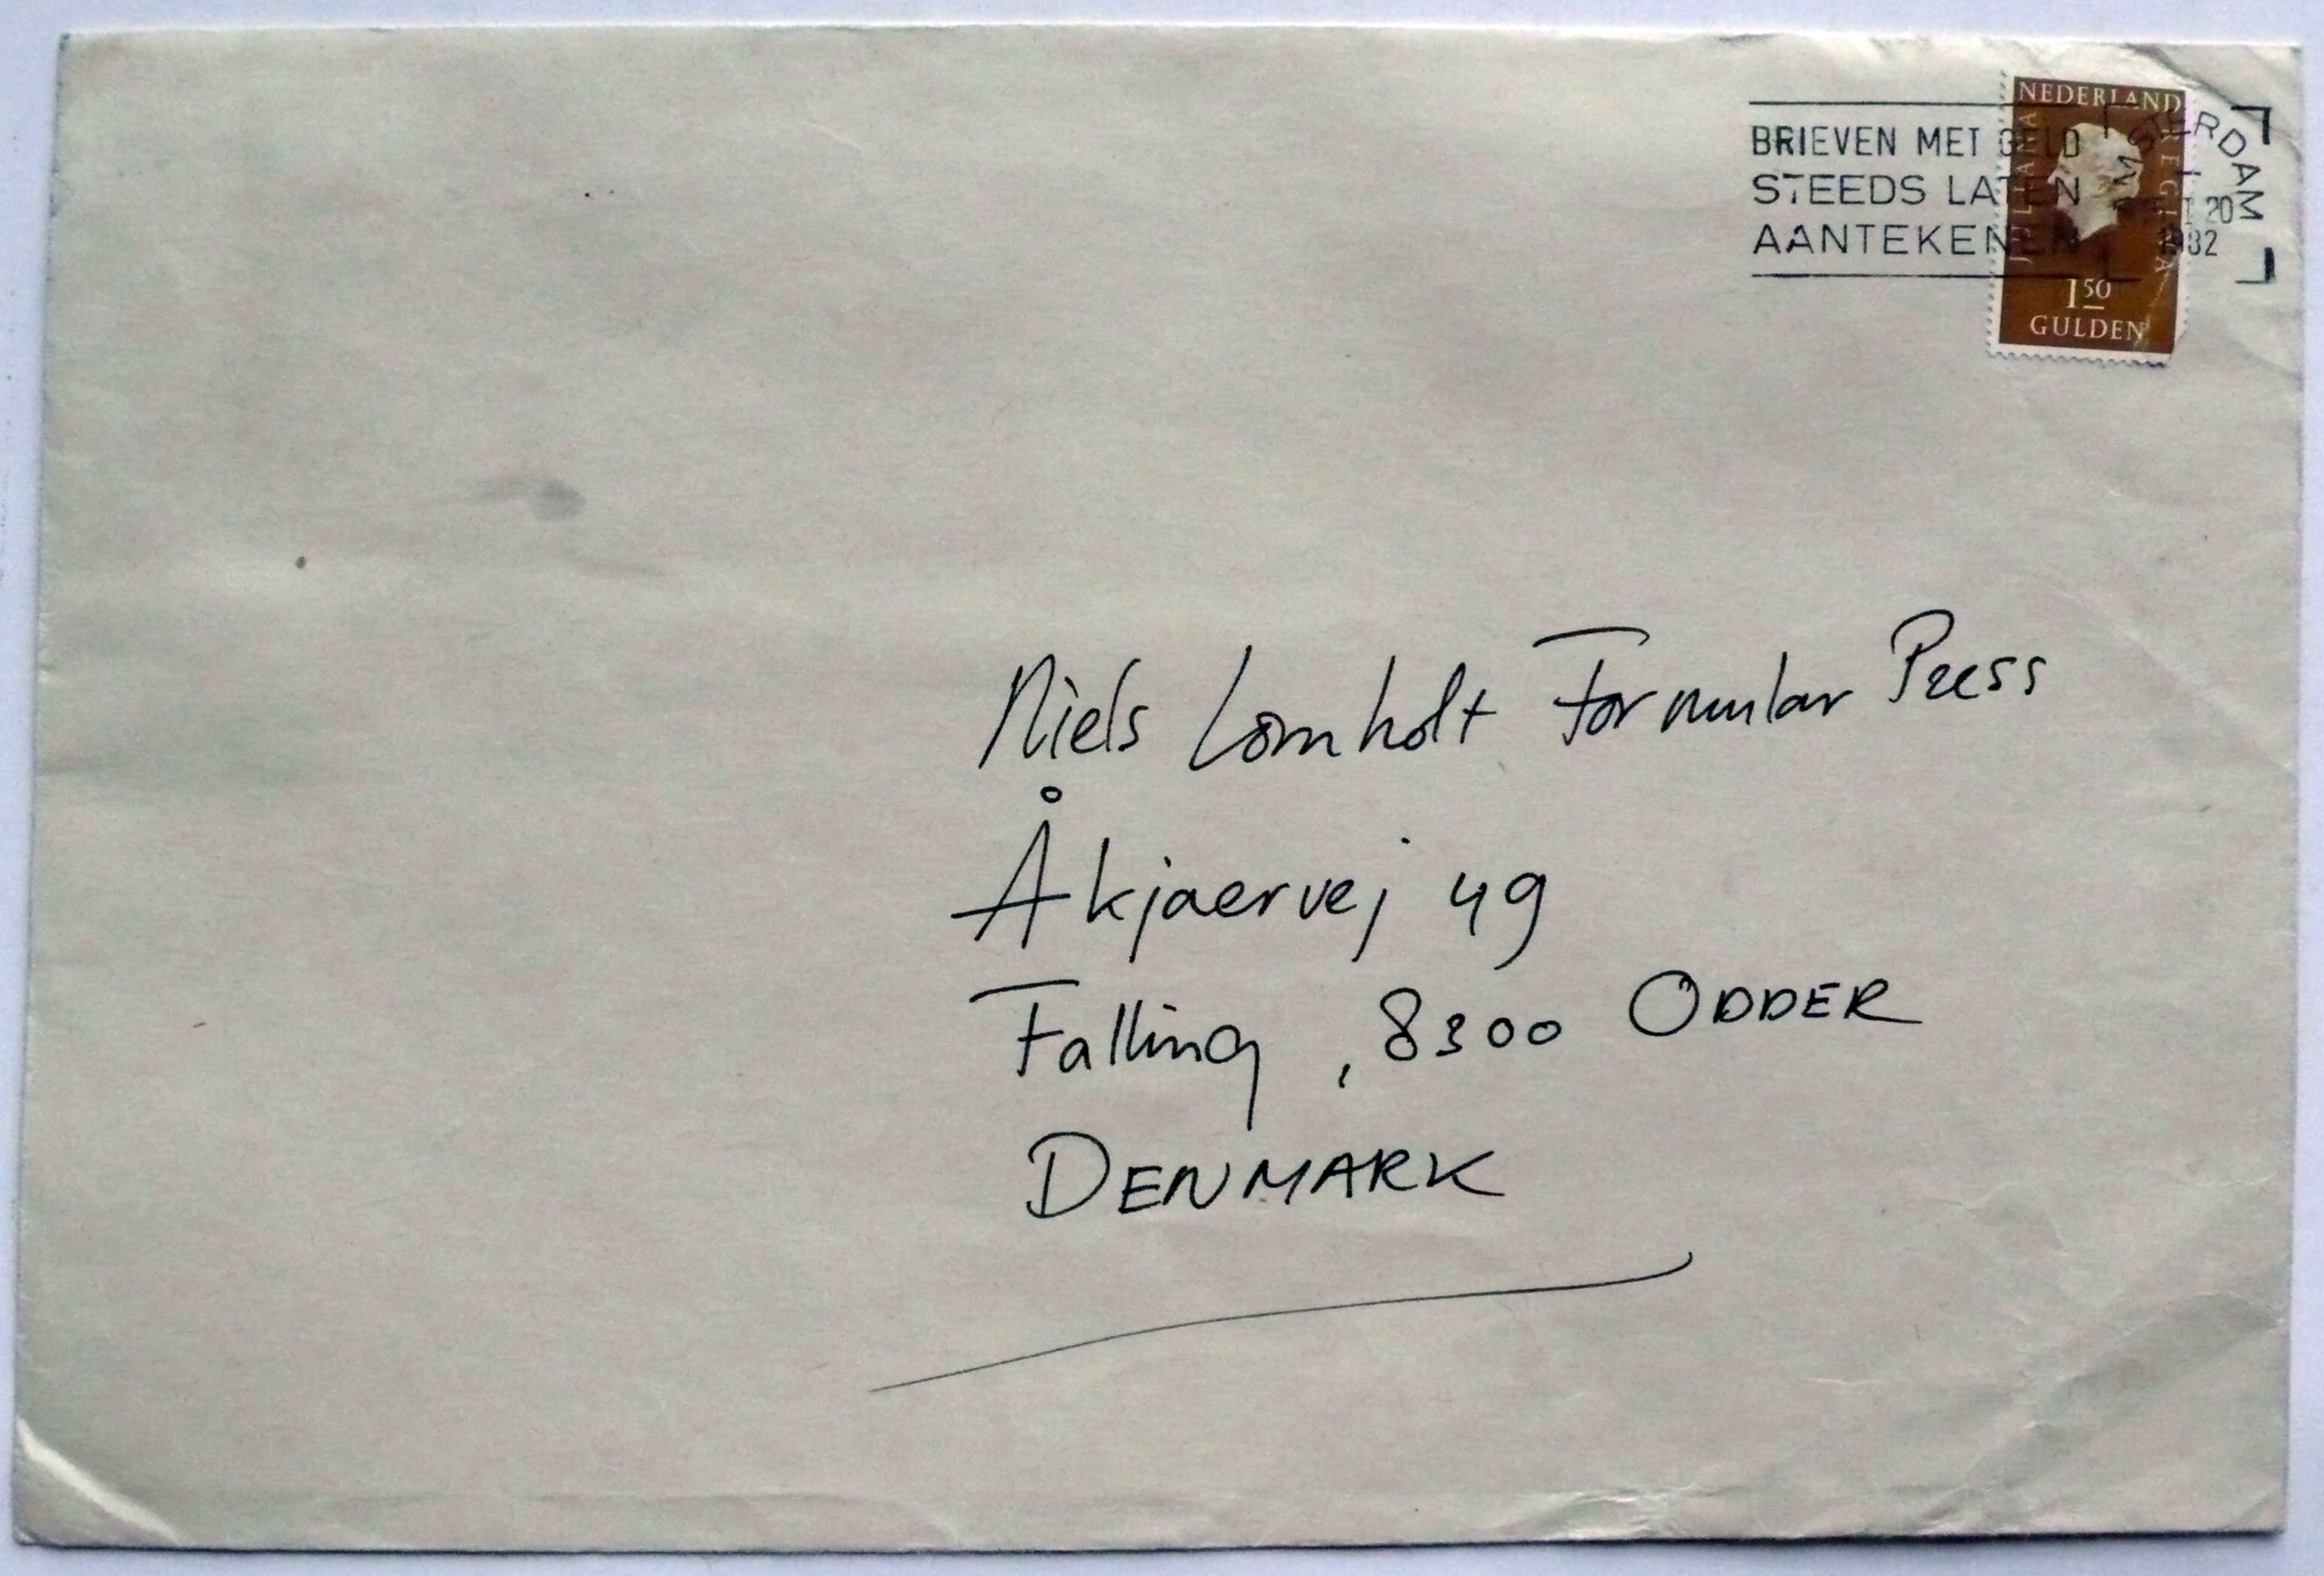 NEDERLAND
JULIANA REGINA
1 50
GULDEN
BRIEVEN MET GELD
STEEDS LATEN
AANTEKENEN
AMSTERDAM
20
1982
Niels Lomholt Formular Press
Åkjaervej 49
Falling, 8300 ODDER
DENMARK